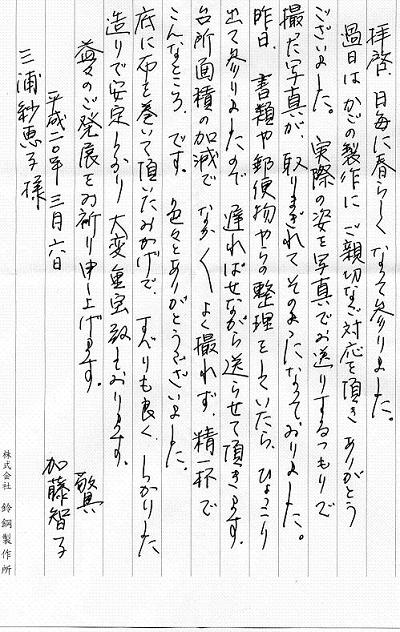 拝啓、日毎に春らしくなって参りました。
過日はかごの製作に、ご親切なご対応を頂き、ありがとう
ございました。実際の姿を写真でお送りするつもりで
撮った写真が、取りまぎれてそのままになっておりました。
昨日、書類や郵便物やらの整理をしていたら、ひょっこり
出て参りましたので、遅ればせながら送らせて頂きます。
台所面積の加減で なかなかよく撮れず、精一杯で
こんなところ、です。色々とありがとうございました。
底に布を巻いて頂いたおかげで、すべりも良く、しっかりした
造りで安定しており 大変重宝致しております。
益々のご発展をお祈り申し上げます。
敬具
平成二〇年三月六日
加藤智子
三浦紗恵子様
株式会社 鈴鋼製作所